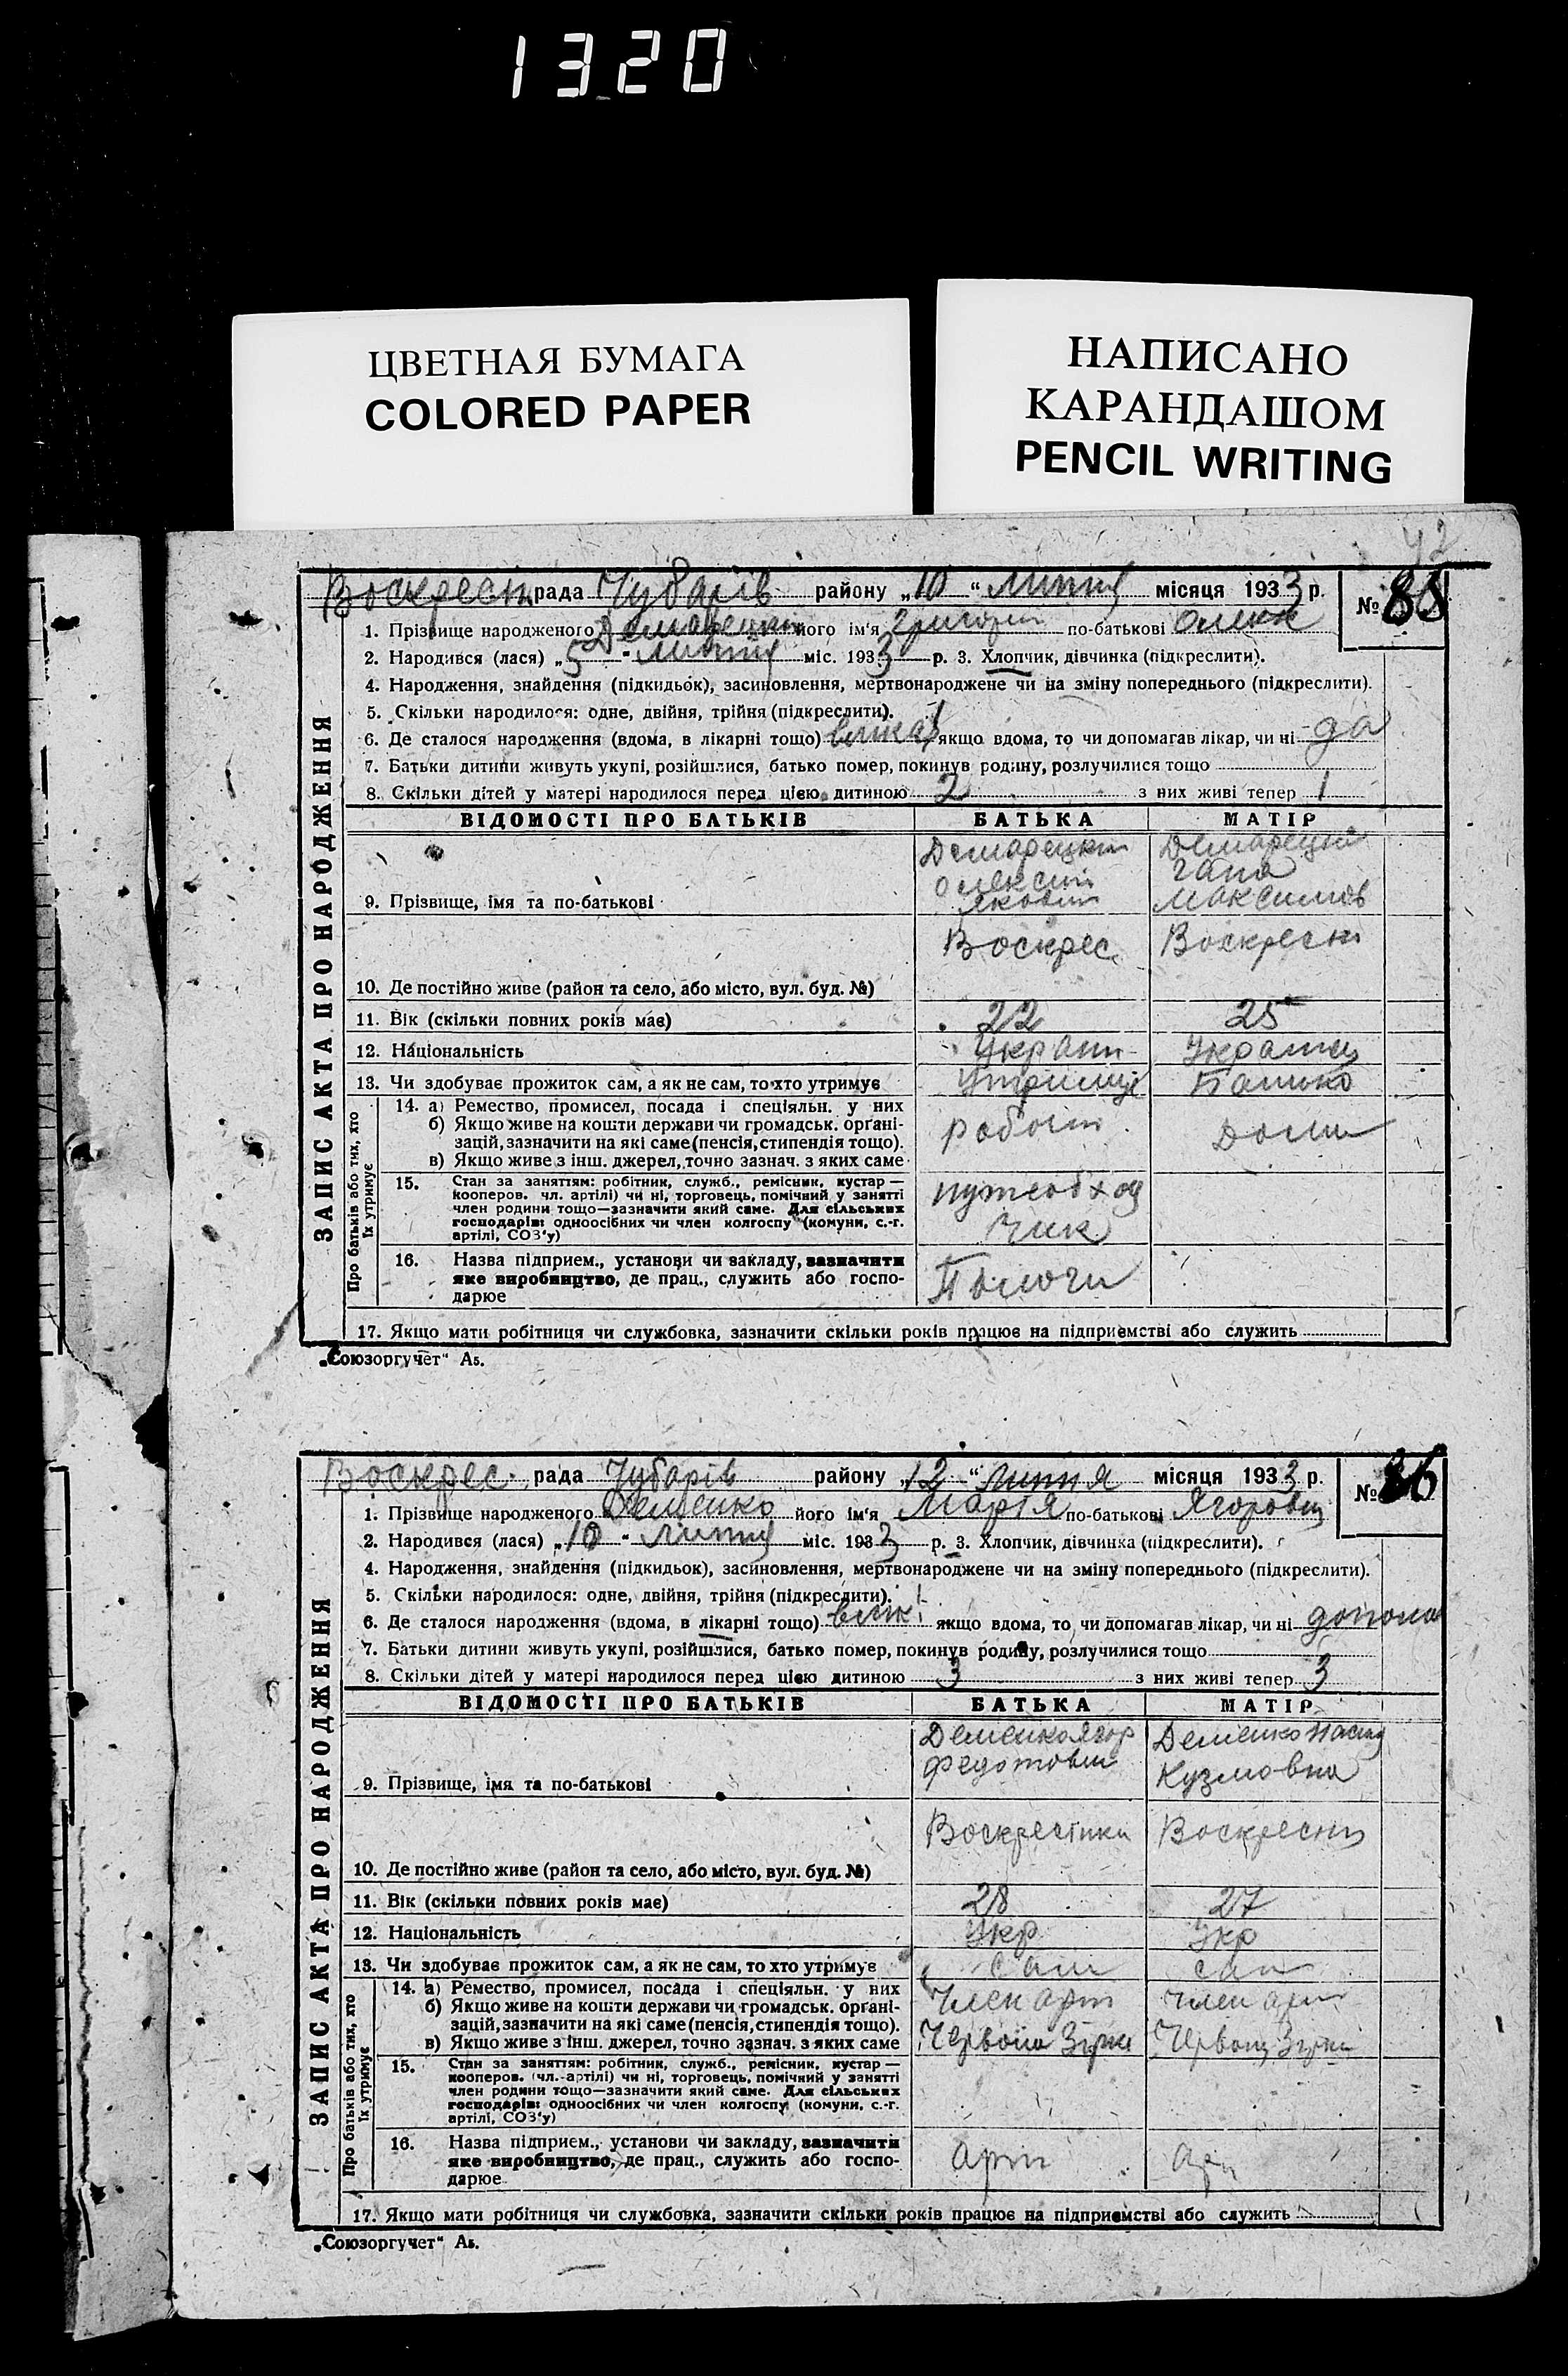 1320
ЦВЕТНАЯ БУМАГА
COLORED PAPER
НАПИСАНО
КАРАНДАШОМ
PENCIL WRITING
42
ЗАПИС АКТА ПРО НАРОДЖЕННЯ
рада Чубарів району „10“ липня місяця 1933 р.
№
1. Прізвище народженого його ім'я Григорій по-батькові Олекс
2. Народився (лася) „5“ липня міс. 1933 р. 3. Хлопчик, дівчинка (підкреслити).
4. Народження, знайдення (підкидьок), засиновлення, мертвонароджене чи на зміну попереднього (підкреслити).
5. Скільки народилося: одне, двійня, трійня (підкреслити).
6. Де сталося народження (вдома, в лікарні тощо) якщо вдома, то чи допомагав лікар, чи ні да
7. Батьки дитини живуть укупі, розійшлися, батько помер, покинув родину, розлучилися тощо
8. Скільки дітей у матері народилося перед цією дитиною 2 з них живі тепер 1
ВІДОМОСТІ ПРО БАТЬКІВ БАТЬКА МАТІР
9. Прізвище, імя та по-батькові Максимов
10. Де постійно живе (район та село, або місто, вул. буд. №) Воскрес Воскресен
11. Вік (скільки повних років має) 22 25
12. Національність
13. Чи здобуває прожиток сам, а як не сам, то хто утримує Батько
Про батьків або тих, хто їх утримує
14. а) Ремество, промисел, посада і спеціяльн. у них
б) Якщо живе на кошти держави чи громадськ. орґані-
зацій, зазначити на які саме (пенсія, стипендія тощо).
в) Якщо живе з інш. джерел, точно зазнач. з яких саме
15. Стан за заняттям: робітник, служб., ремісник, кустар —
кооперов. чл. артілі) чи ні, торговець, помічний у занятті
член родини тощо—зазначити який саме. Для сільських
господарів: одноосібних чи член колгоспу (комуни, с.-г.
артілі, СОЗ'у)
путеобход
чик
16. Назва підприєм., установи чи закладу, зазначити
яке виробництво, де прац., служить або госпо-
дарює
Пологи
17. Якщо мати робітниця чи службовка, зазначити скільки років працює на підприємстві або служить
„Союзоргучет“ А5.
ЗАПИС АКТА ПРО НАРОДЖЕННЯ
Воскрес. рада Чубарів району „12“ липня місяця 1933 р.
№ 86
1. Прізвище народженого Деменко його ім'я Марія по-батькові Ягоровн
2. Народився (лася) „10“ липня міс. 1933 р. 3. Хлопчик, дівчинка (підкреслити).
4. Народження, знайдення (підкидьок), засиновлення, мертвонароджене чи на зміну попереднього (підкреслити).
5. Скільки народилося: одне, двійня, трійня (підкреслити).
6. Де сталося народження (вдома, в лікарні тощо) якщо вдома, то чи допомагав лікар, чи ні
7. Батьки дитини живуть укупі, розійшлися, батько помер, покинув родину, розлучилися тощо
8. Скільки дітей у матері народилося перед цією дитиною 3 з них живі тепер 3
ВІДОМОСТІ ПРО БАТЬКІВ БАТЬКА МАТІР
Деменко Ягор Деменко
9. Прізвище, імя та по-батькові Федотович Кузмовна
10. Де постійно живе (район та село, або місто, вул. буд. №)
11. Вік (скільки повних років має) 28 27
12. Національність Укр Укр
13. Чи здобуває прожиток сам, а як не сам, то хто утримує сам сам
Про батьків або тих, хто їх утримує
14. а) Ремество, промисел, посада і спеціяльн. у них Член арт член арт
б) Якщо живе на кошти держави чи громадськ. орґані-
зацій, зазначити на які саме (пенсія, стипендія тощо).
в) Якщо живе з інш. джерел, точно зазнач. з яких саме
15. Стан за заняттям: робітник, служб., ремісник, кустар —
кооперов. (чл. артілі) чи ні, торговець, помічний у занятті
член родини тощо—зазначити який саме. Для сільських
господарів: одноосібних чи член колгоспу (комуни, с.-г.
артілі, СОЗ'у)
16. Назва підприєм., установи чи закладу, зазначити
яке виробництво, де прац., служить або госпо- арт
дарює
17. Якщо мати робітниця чи службовка, зазначити скільки років працює на підприємстві або служить
„Союзоргучет“ А5.